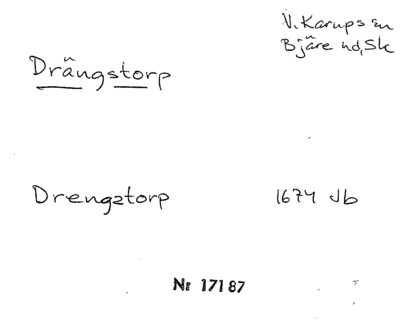 V. Karups sn
Bjäre hd, Sk
Drängstorp
Drengztorp 1674 Jb
Nr 17187